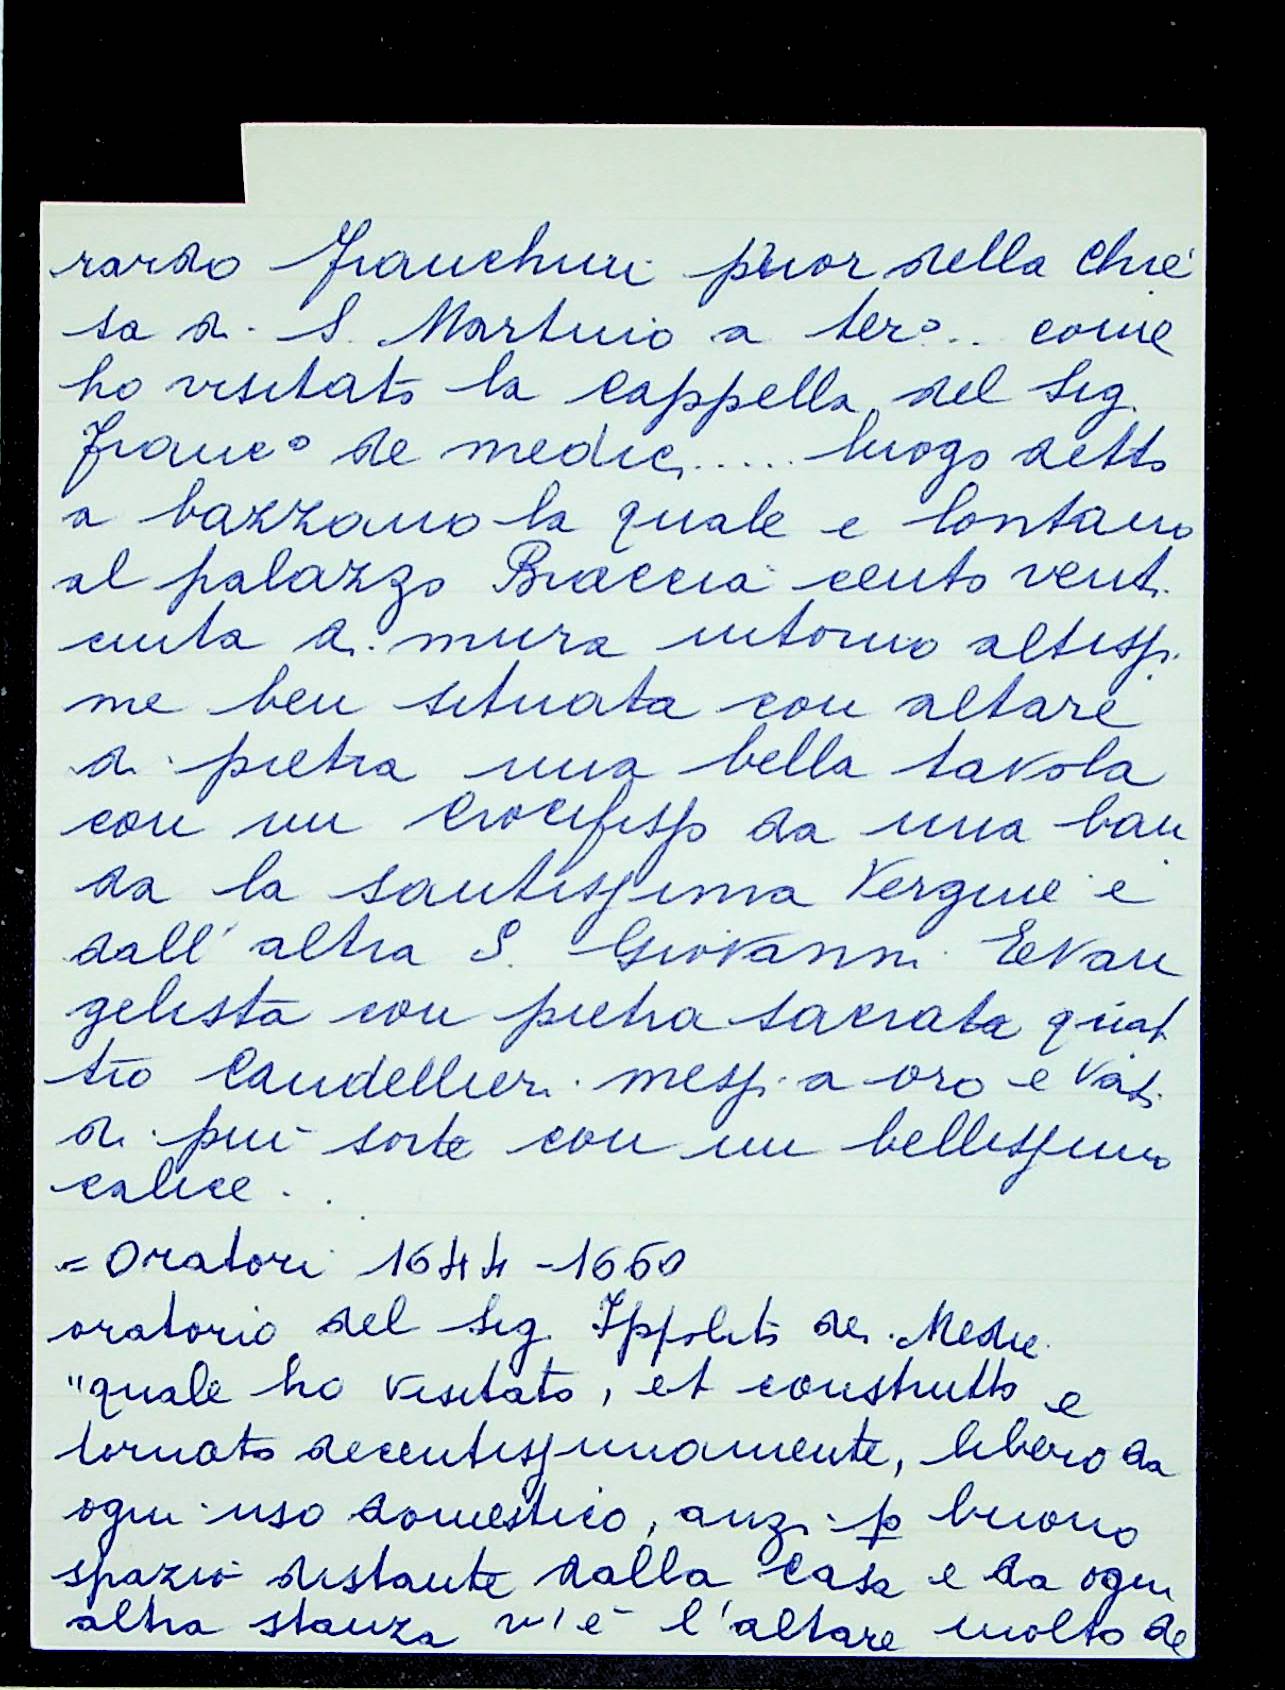 rardo Franchini prior della Chie
sa di S. Martino a ter°.. come
ho visitato la cappella del Sig.
Franc° de medici..... luogo detto
a bazzano la quale e lontano
al palazzo Braccia cento venti
cinta di mura intorno altissi
me ben situata con altare
di pietra una bella tavola
con un Crocifisso da una ban
da la santissima Vergine e
dall'altra S. Giovanni Evan
gelista con pietra sacrata quat
tro Candellieri messi a oro e vasi
di più sorte con un bellissimo
calice..
= Oratori 1644-1660
oratorio del Sig. Ippolito de Medici
"quale ho visitato, et construtto e
tornato decentissimamente, libero da
ogni uso domestico, anzi p buono
spazio distante dalla Casa e da ogni
altra stanza v'è l'altare molto de